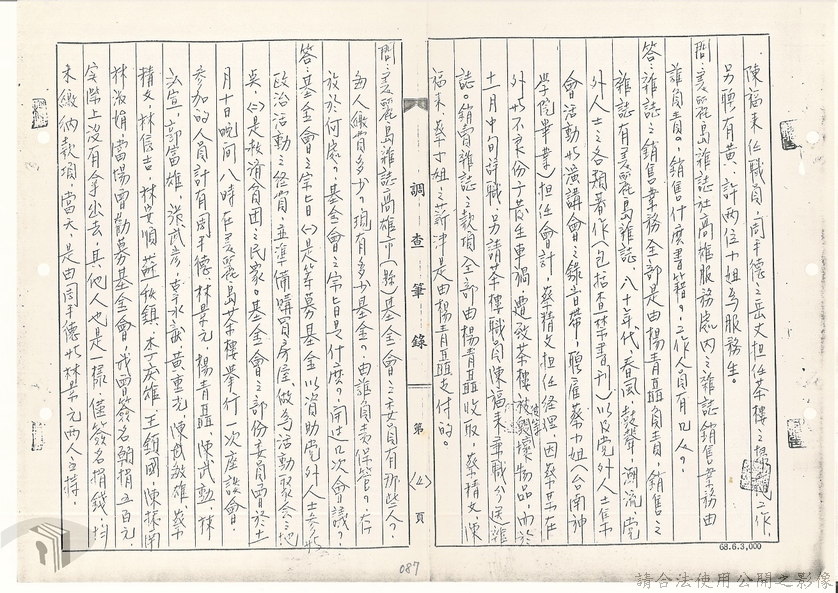 陳福來任職員，周平德之岳丈担任茶樓之工作，
另聘有黃、許兩位小姐為服務生。
問：美麗島雜誌社高雄服務處內之雜誌銷售業務由
誰負責？銷售什麼書籍？工作人員有几人？
答：雜誌之銷售業務全部是由楊青矗負責，銷售之
雜誌有美麗島雜誌、八十年代、春風、鼓聲、潮流、黨
外人士之各類著作（包括查禁書刊）以及黨外人士集
會活動時演講會之錄音帶，聘雇蔡小姐（台南神
學院畢業）担任會計，蔡精文担任經理，因蔡某在
外時不良份子發生車禍，遭致茶樓被搗壞物品，而於
十一月中旬辭職，另請茶樓職員陳福來兼職分送雜
誌。銷售雜誌之款項全部由楊青矗收取，蔡精文、陳
福來、蔡小姐之薪津是由楊青矗支付的。
調查筆錄
第〈4〉頁
問：美麗島雜誌高雄市（縣）基金會之委員有那些人？
每人繳費多少？現有多少基金？由誰負責保管？存
放於何處？基金會之宗旨是什麼？開過几次會議？
答：基金會之宗旨㈠是籌募基金以資助黨外人士參與
政治活動之經費，並準備購買房屋做為活動聚會之地
㈡是救濟貧困之民眾。基金會之部份委員曾於十
月十日晚間八時在美麗島茶樓舉行一次座談會，
參加的人員計有周平德、林景元、楊青矗、陳武勳、林
弘宣、郭富雄、李永 、黃重光、陳 雄、蔡
精文、林信吉、林安順、蘇秋鎮、李 雄、王鎮國、陳
林淑娟，當場曾勸募基金會，我曾簽名樂捐五百元，
實際上沒有拿出去，其他人也是一樣僅簽名捐錢，均
未繳納款項，當天是由周平德與林景元兩人主持，
087
68.6.3,000
請合法使用公開之影像